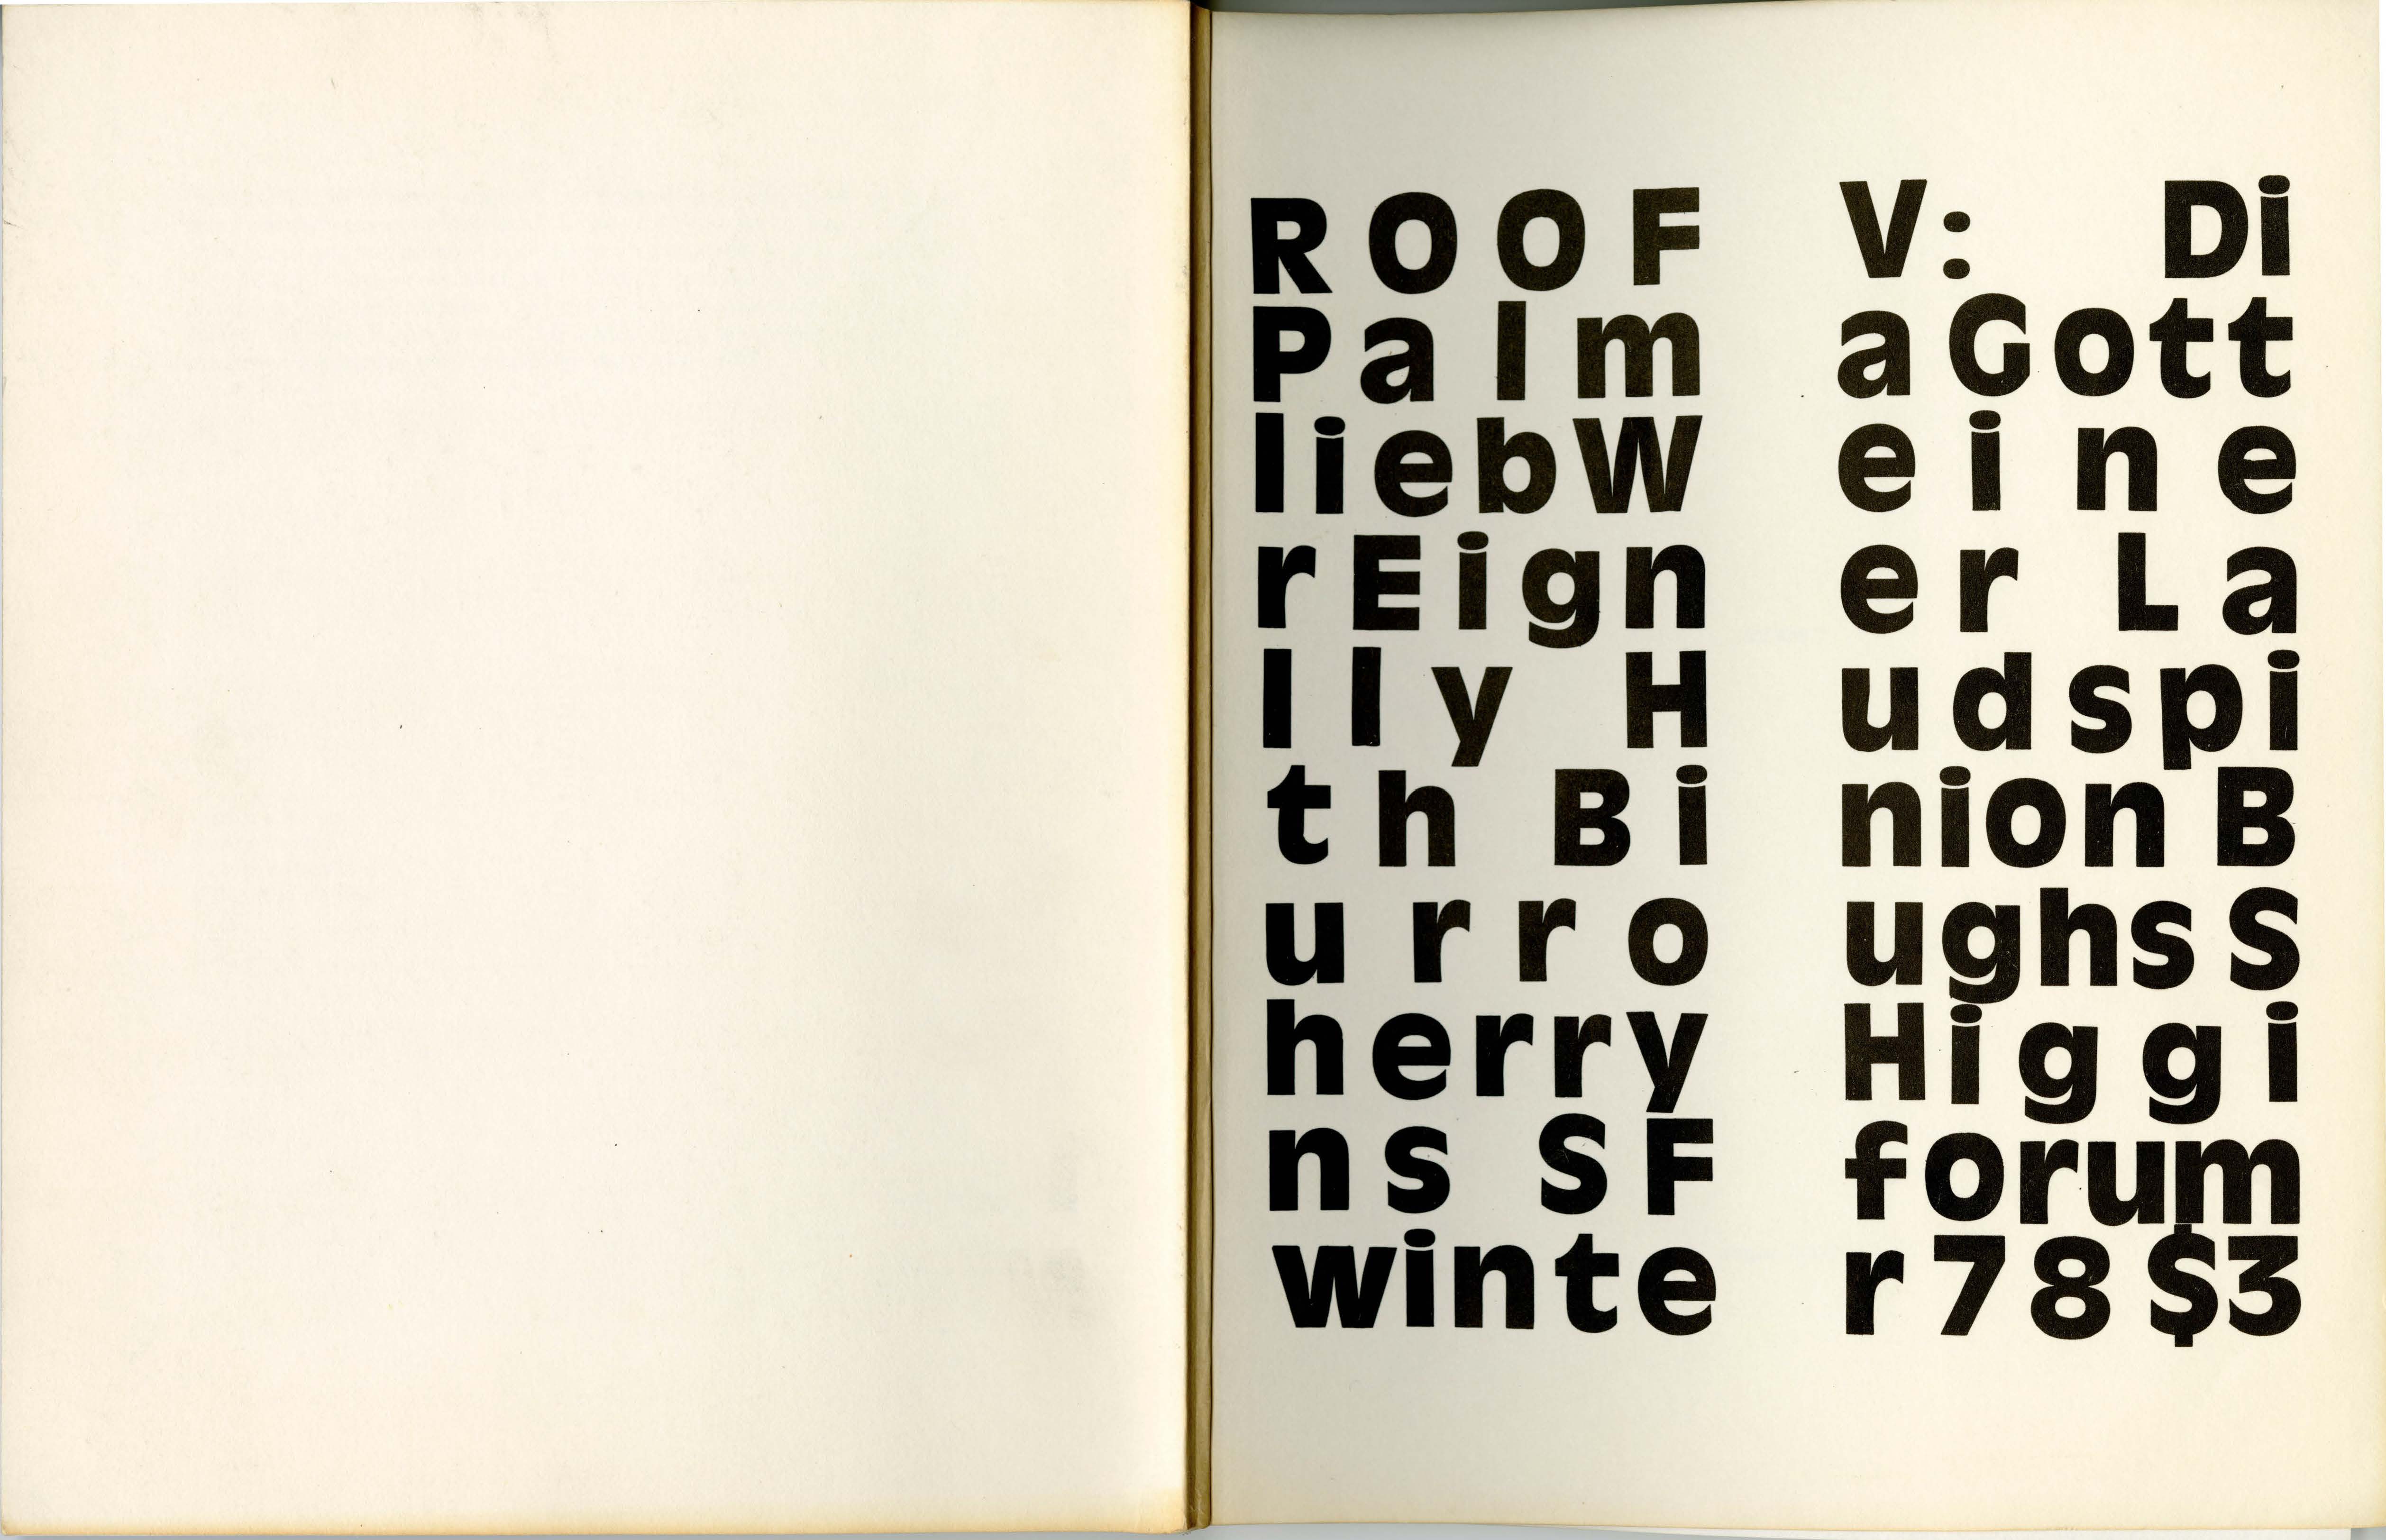 ROOF V: Di
PalmaGott
liebWeine
rEigner La
lly Hudspi
th Binion B
urroughs S
herry Higgi
ns SF forum
winter78$3